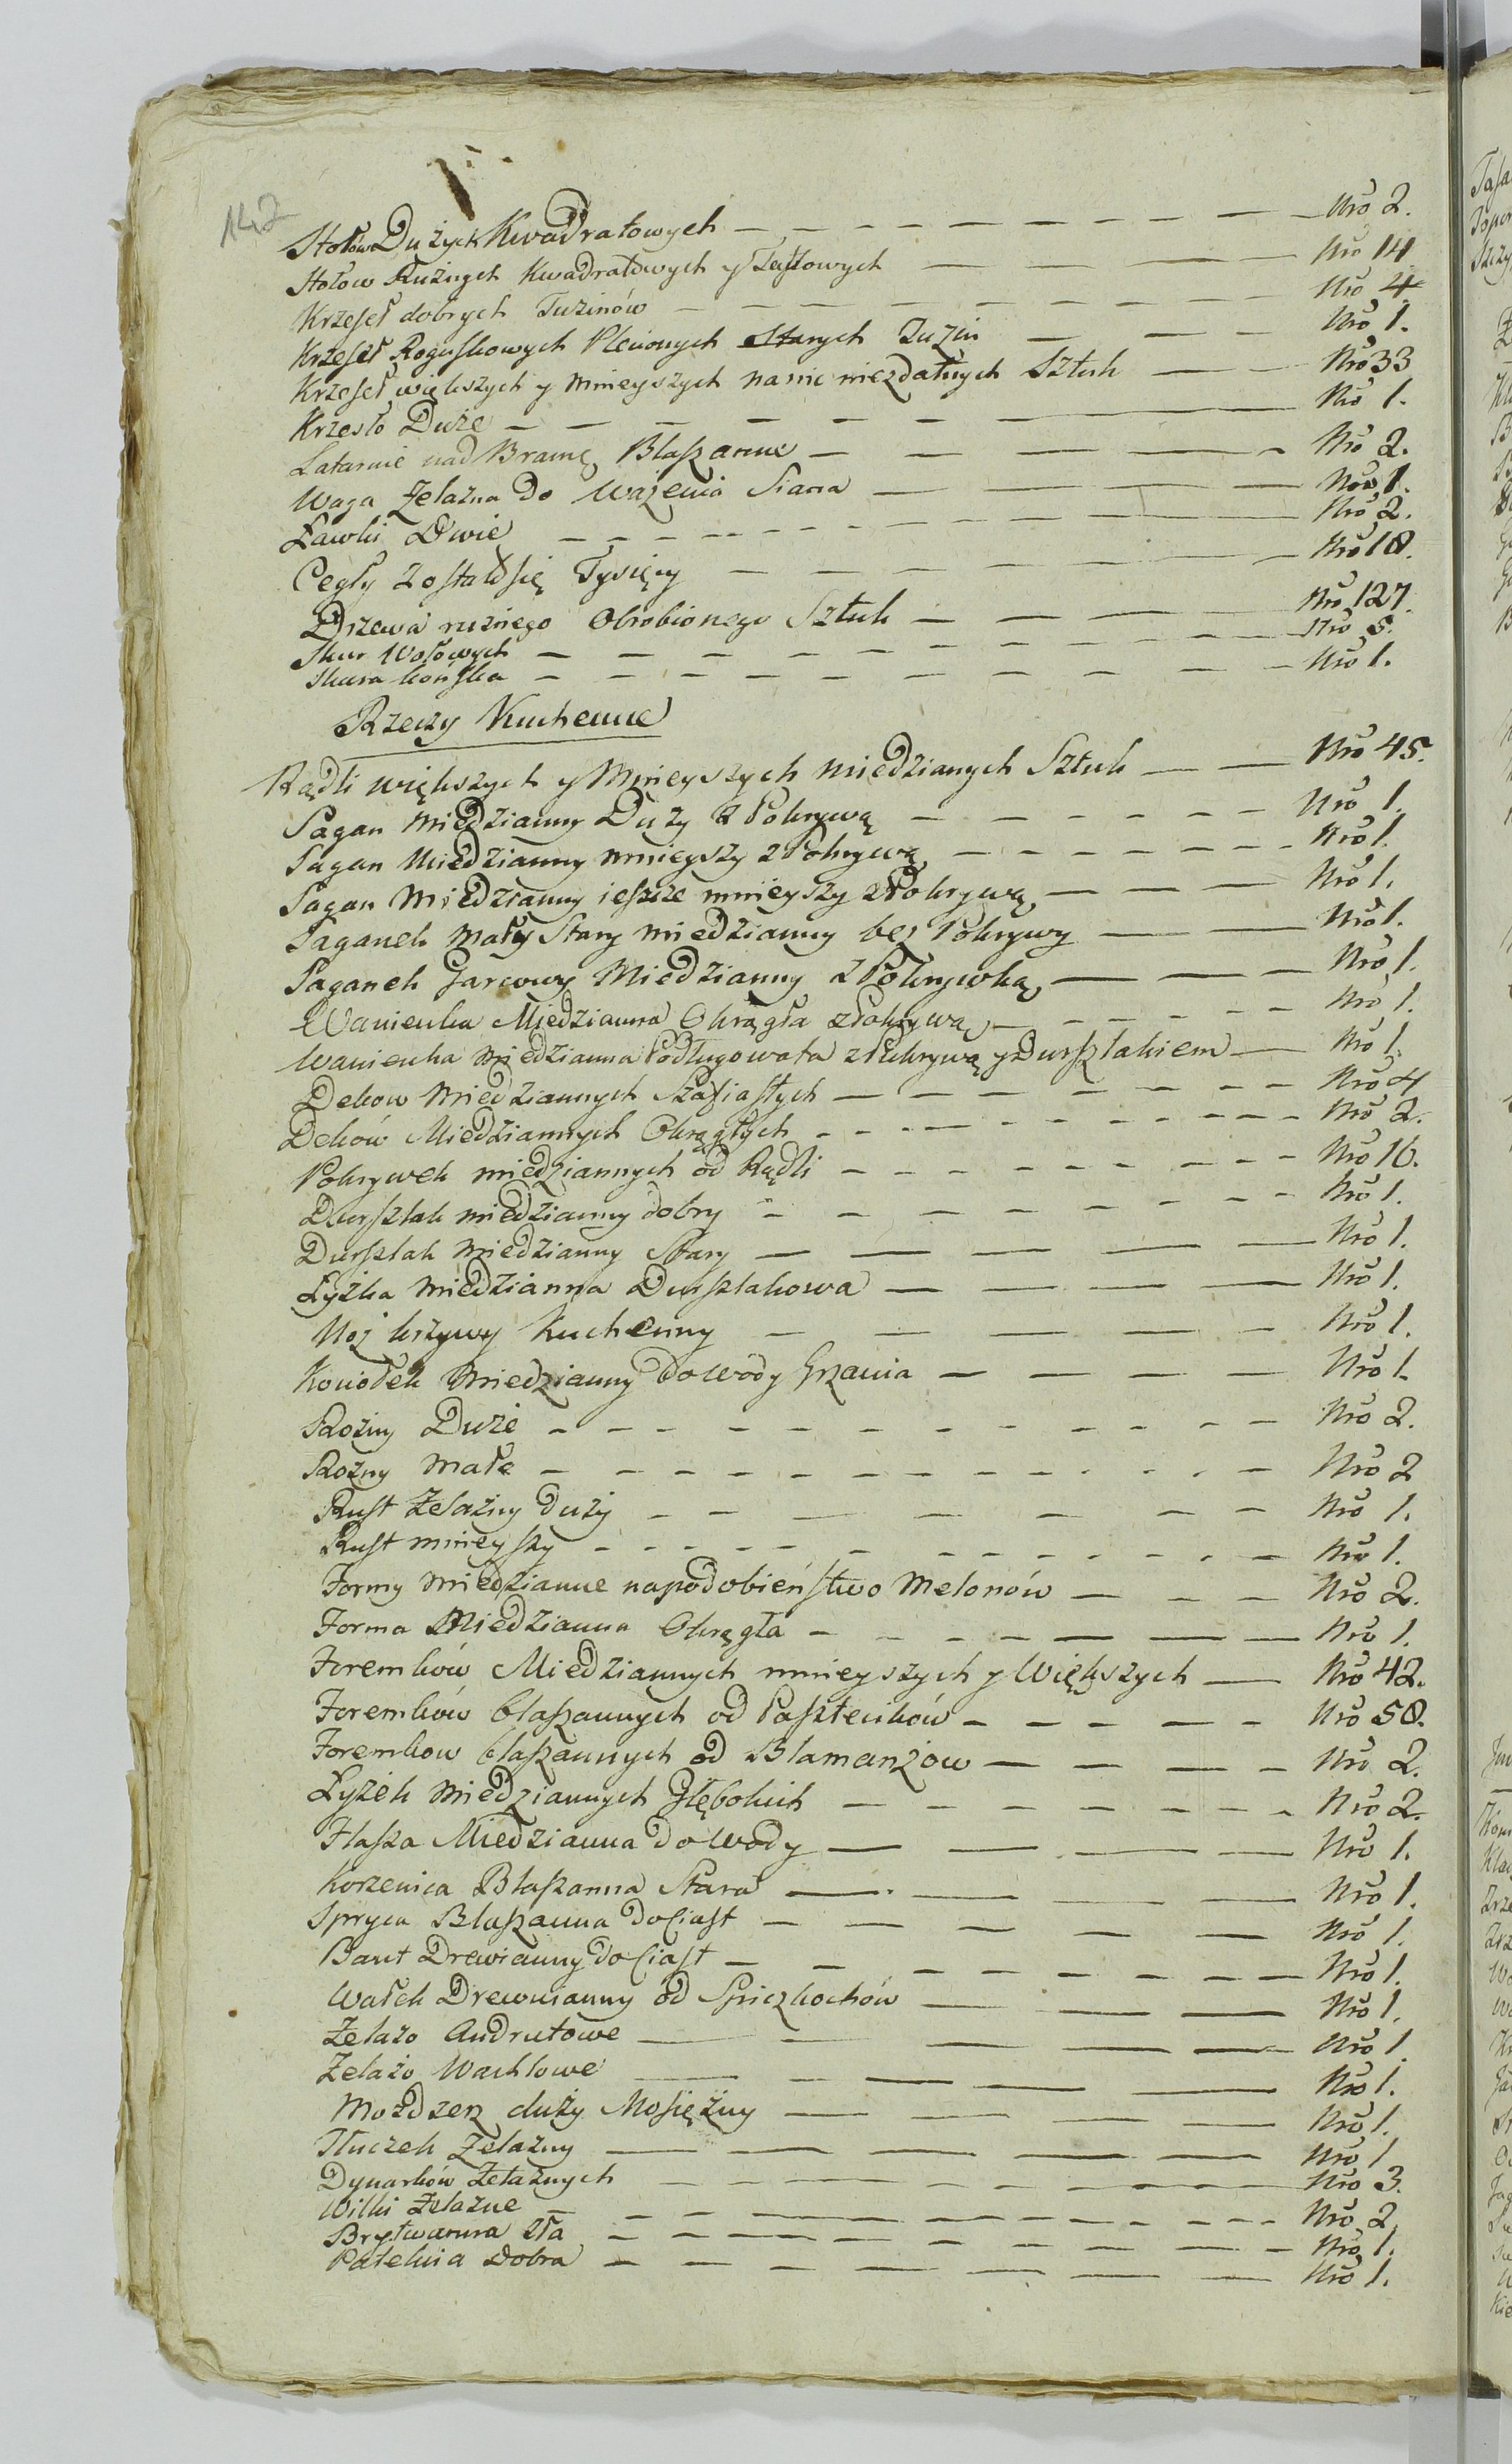 142
Stołow Dużych Kwadratowych — Nrő 2.
Stołow Rużnych Kwadratowych y Taflowych — Nrő 14
Krzeseł dobrych Tuzinów — Nrő 4
Krzeseł Roguskowych Plecionych Starych Tuzin — Nrő 1.
Krzeseł większych y mnieyszych na nic niezdatnych Sztuk — Nrő 33
Krzesło Duże — Nrő 1.
Latarnie nad Bramę Blaszanne — Nrő 2.
Waga Żelazna do Ważenia Siana — Nrő 1.
Ławki Dwie — Nrő 2.
Cegły Zostało się Tysięcy — Nrő 18.
Drzewa rużnego Obrobionego Sztuk — Nrő 127.
Skur Wołowych — Nrő 5.
Skura końska — Nrő 1.
Rzeczy Kuchenne
Rądli większych y Mnieyszych miedzianych Sztuk — Nrő 45.
Sagan Miedzianny Duży z Pokrywą — Nrő 1.
Sagan Miedzianny mnieyszy z Pokrywą — Nrő 1.
Sagan Miedzianny ieszcze mnieyszy z Pokrywą — Nrő 1.
Saganek mały Stary miedzianny bez Pokrywy — Nrő 1.
Saganek Garcowy Miedzianny z Pokrywką — Nrő 1.
Wanienka Miedzianna Okrągła z Pokrywą — Nrő 1.
Wanienka miedzianna Podługowata z Pokrywą y Durszlakiem — Nrő 1.
Dekow Miedziannych Szafiastych — Nrő 4
Deków Miedziannych Okrągłych — Nrő 2.
Pokrywek miedziannych od Rądli — Nrő 16.
Durszlak miedzianny dobry — Nrő 1.
Durszlak miedzianny Stary — Nrő 1.
Łyżka miedzianna Durszlakowa — Nrő 1.
Noż krzywy Kuchenny — Nrő 1.
Kociołek Miedzianny do Wody Grzania — Nrő 1.
Rożny Duże — Nrő 2.
Rożny Małe — Nrő 2
Rust Żelazny duży — Nrő 1.
Rust mnieyszy — Nrő 1.
Formy miedzianne na podobieństwo Melonów — Nrő 2.
Forma Miedzianna Okrągła — Nrő 1.
Foremków Miedziannych mnieyszych y Większych — Nrő 42.
Foremków blaszannych od Pasztecików — Nrő 50.
Foremkow blaszannych od Blamanżow — Nrő 2.
Łyżek Miedziannych Głębokich — Nrő 2.
Flasza Miedzianna do Wody — Nrő 1.
Korzenica Blaszanna Stara — Nrő 1.
Spryca Blaszanna do Ciast — Nrő 1.
Bant Drewianny do Ciast — Nrő 1.
Wałek Drewnianny od Spiczkochów — Nrő 1.
Żelazo Andrutowe — Nrő 1.
Żelazo Wachlowe — Nrő 1.
Możdzerz duży Mosiężny — Nrő 1.
Tłuczek Żelazny — Nrő 1
Dynarków Żelaznych — Nrő 3.
Wilki Żelazne — Nrő 2.
Brytwanna zła — Nrő 1.
Patelnia Dobra — Nrő 1.